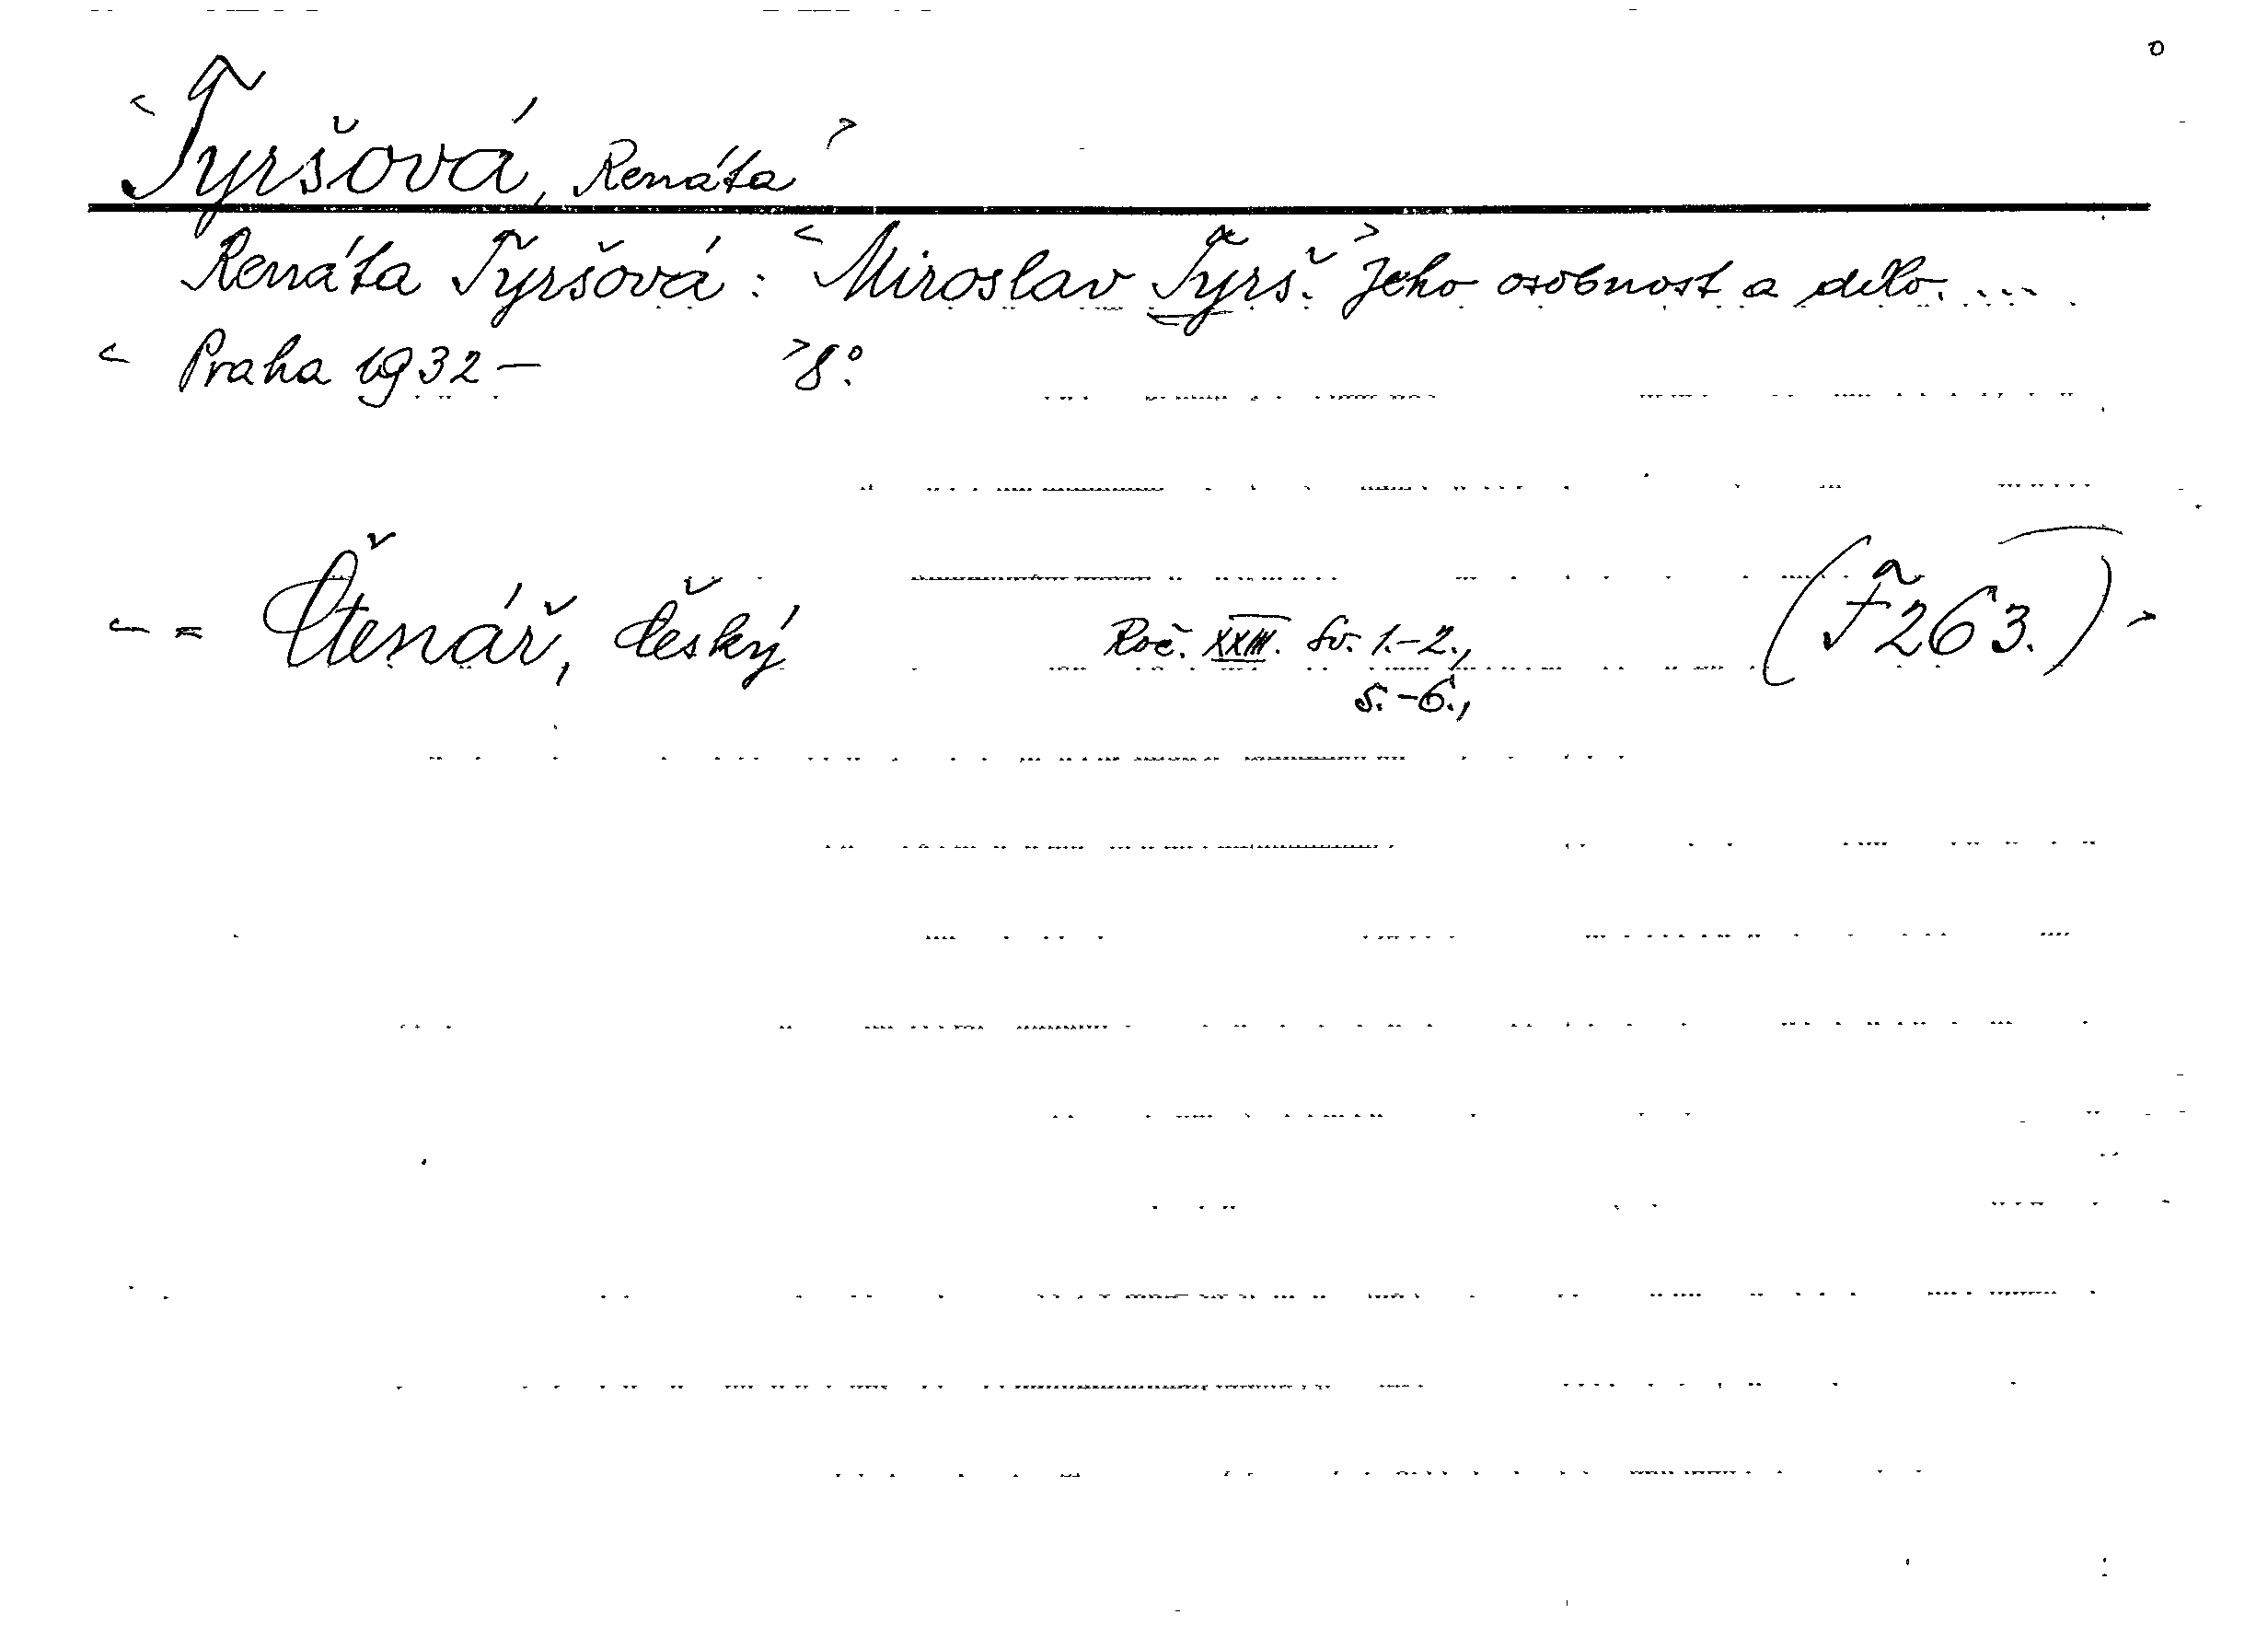 o
< Tyršová, Renáta >
Renáta Tyršová: < Miroslav Tyrš. > Jeho osobnost a dílo. ...
< Praha 1932 – > 8°.
< = Čtenář, český Roč. XXIII. Sv. 1.–2., (F 263.) >
5.–6.,